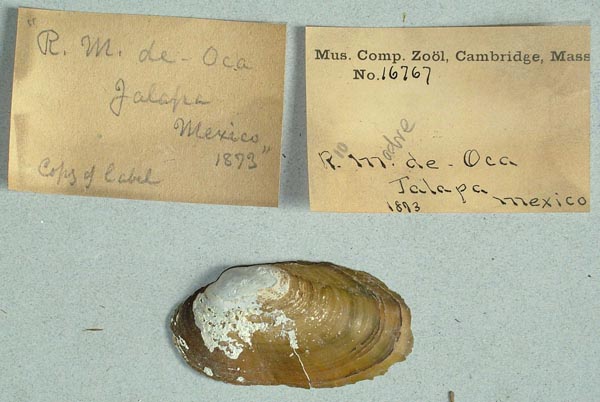 "R. M. de-Oca
Jalapa
Mexico"
1873
Copy of label
Mus. Comp. Zoöl, Cambridge, Mass
No. 16767
10
R. M. de-Oca
Jalapa
Mexico
1873